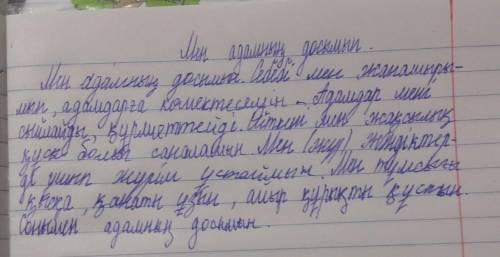 Мен адамның досымын.
Мен адамның досымын. Себебі мен жағымпыр-
мын, адамдарға көмектесемін. Адамдар мені
сыйлайды, құрметтейді. Өйткені мен жақсылық
құсы болып саналамын Мен (жүр) жәндіктер-
ді ұшып жүріп ұстаймын. Мен тұмсығы
қысқа, қанаты ұзын, айыр құйрықты құспын.
Сонымен адамның досымын.